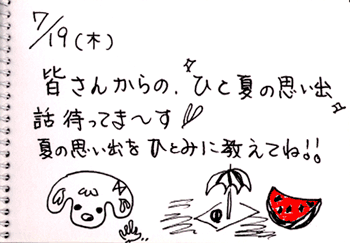 7/19(木)
皆さんからの、ひと夏の思い出
話待ってま〜す
夏の思い出をひとみに教えてね!!